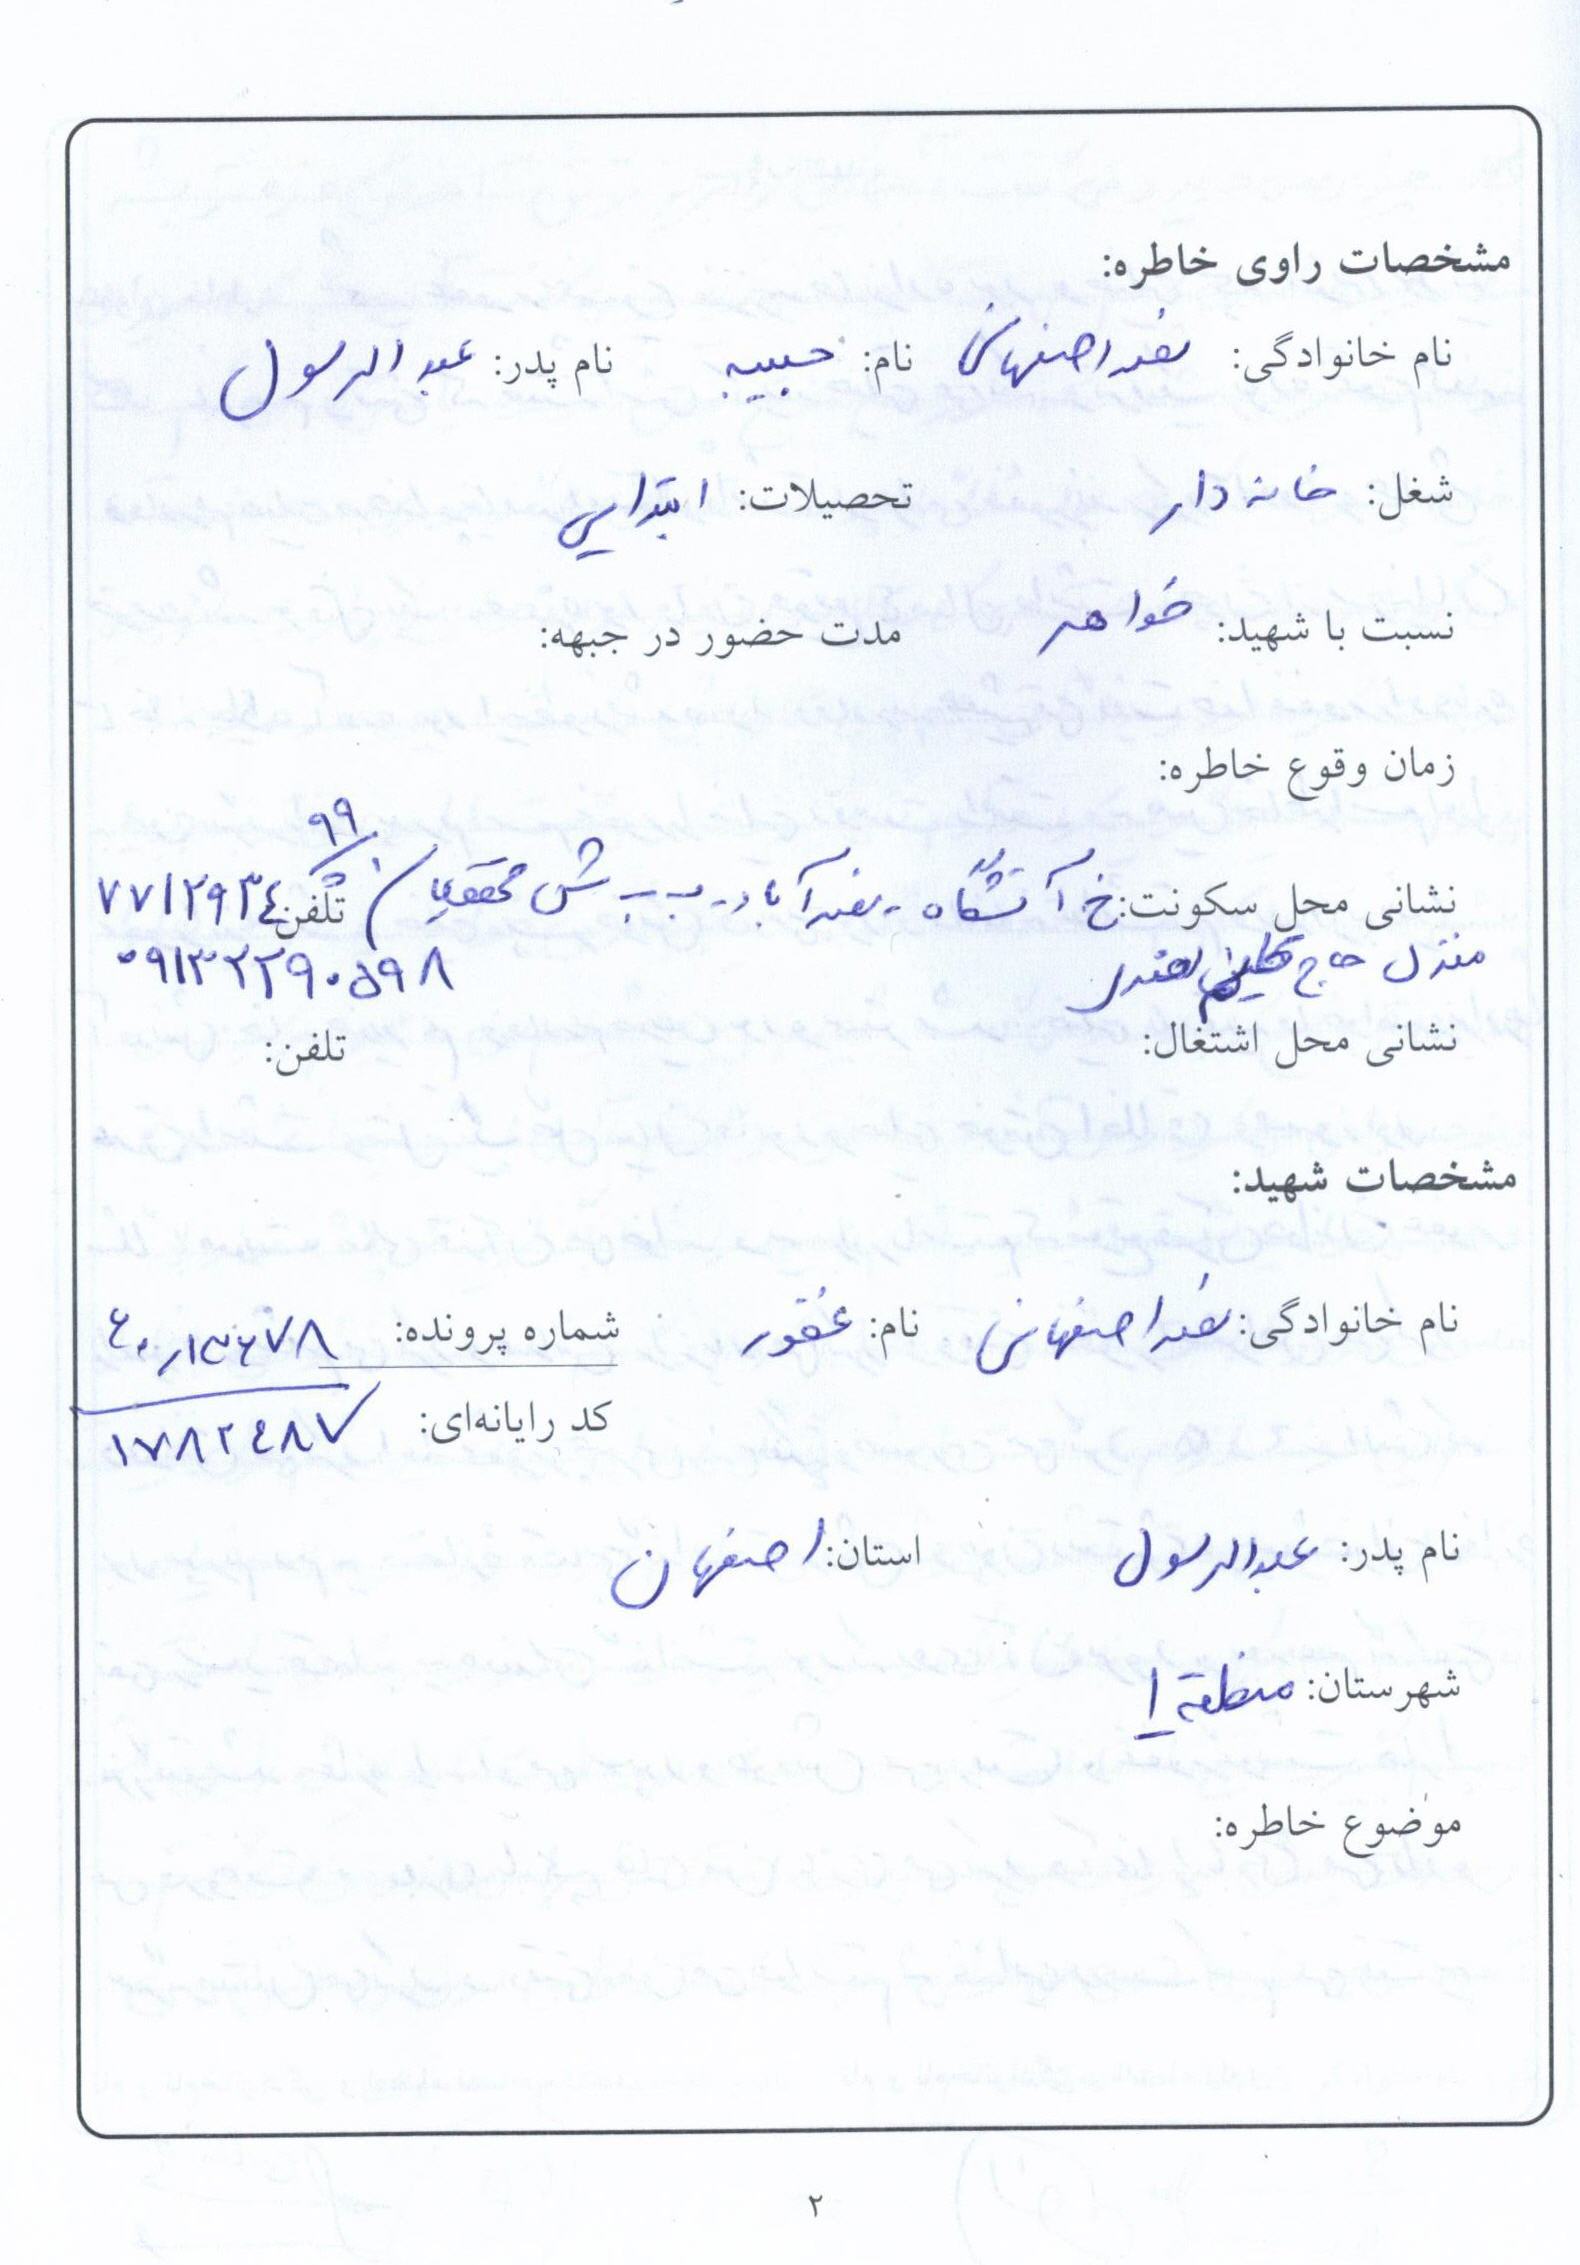 مشخصات راوی خاطره:
نام خانوادگی: نصر اصفهانی نام: حبیبه نام پدر: عبدالرسول
شغل: خانه دار تحصیلات: ابتدایی
نسبت با شهید: خواهر مدت حضور در جبهه:
زمان وقوع خاطره:
نشانی محل سکونت: خ آتشگاه - نصرآباد - ب ب ش محققیان پ ۹۹ تلفن: ۷۷۱۲۹۳۴
منزل حاج نصر ۰۹۱۳۲۲۹۰۵۹۸
نشانی محل اشتغال: تلفن:
مشخصات شهید:
نام خانوادگی: نصر اصفهانی نام: غفور شماره پرونده:
کد رایانه‌ای: ۱۷۸۲۴۸۷
نام پدر: عبدالرسول استان: اصفهان
شهرستان: منطقه ۱
موضوع خاطره:
۲